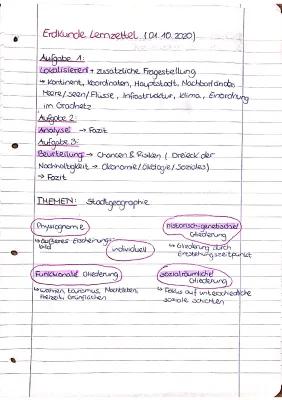 Erdkunde Lernzettel (01.10.2020)
Aufgabe 1:
Lokalisieren + zusätzliche Fragestellung
→ Kontinent, Koordinaten, Hauptstadt, Nachbarländer
Meere/Seen/Flüsse, Infrastruktur, Klima, Einordnung
im Gradnetz
Aufgabe 2:
Analyse → Fazit
Aufgabe 3:
Beurteilung → Chancen & Risiken (Dreieck der
Nachhaltigkeit → Ökonomie/Ökologie/Soziales)
→ Fazit
THEMEN: Stadtgeographie
Physiognomie
→ äußeres Erscheinungsbild
individuell
historisch-genetische
Gliederung
→ Gliederung durch
Entstehungszeitpunkt
Funktionale Gliederung
→ wohnen, tourismus, Nachtleben,
Freizeit, Grünflächen
sozialräumliche
Gliederung
→ Fokus auf unterschiedliche
soziale schichten